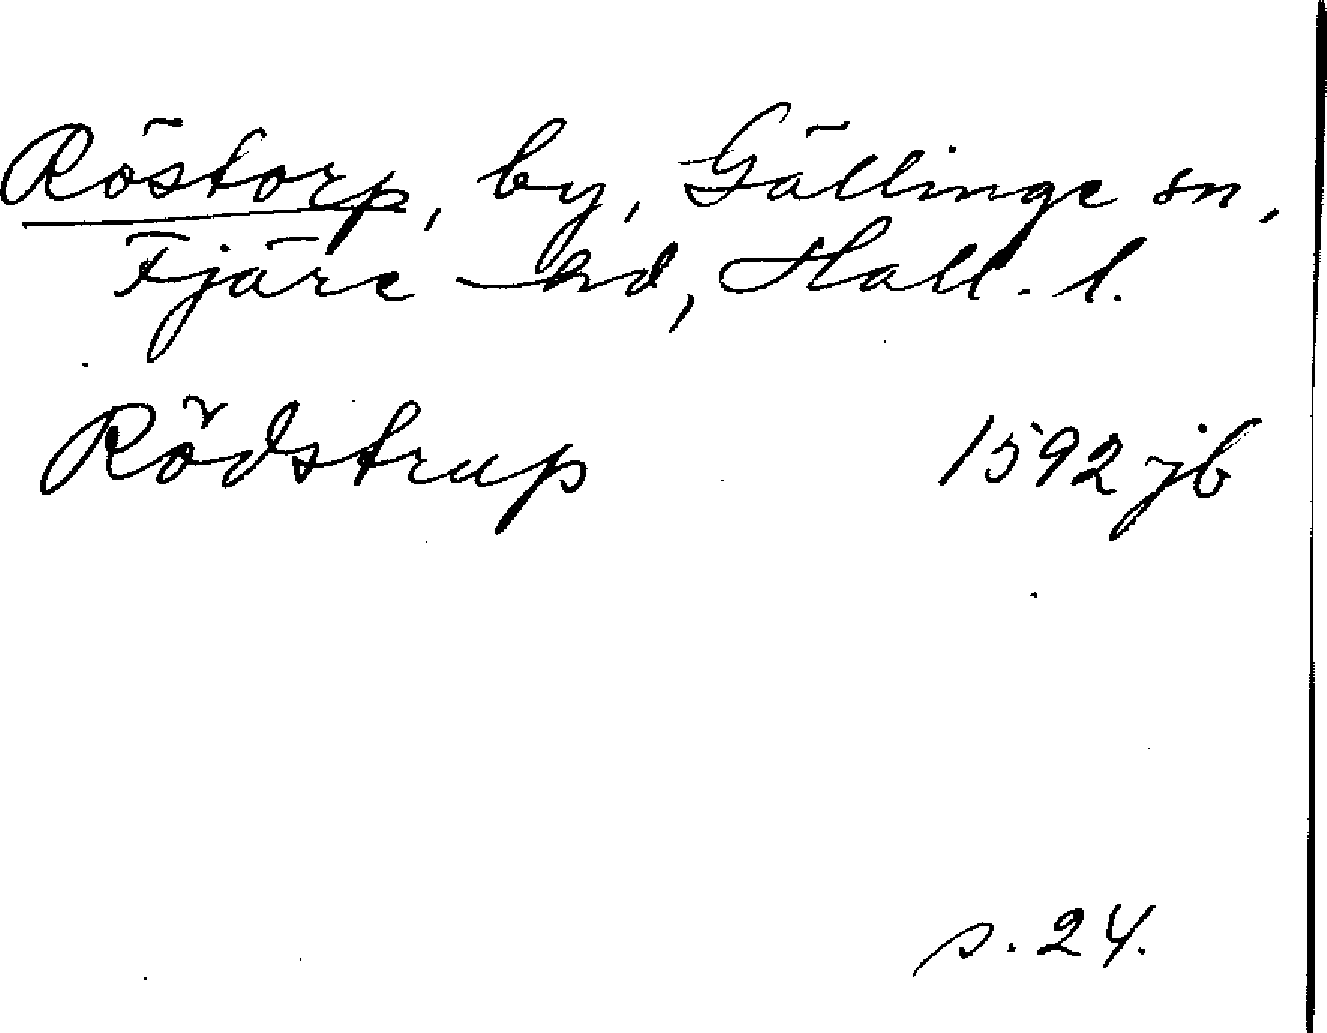 Röstorp, by, Gällinge sn,
Fjäre hd, Hall. l.
Rödstrup 1592 jb
s. 24.